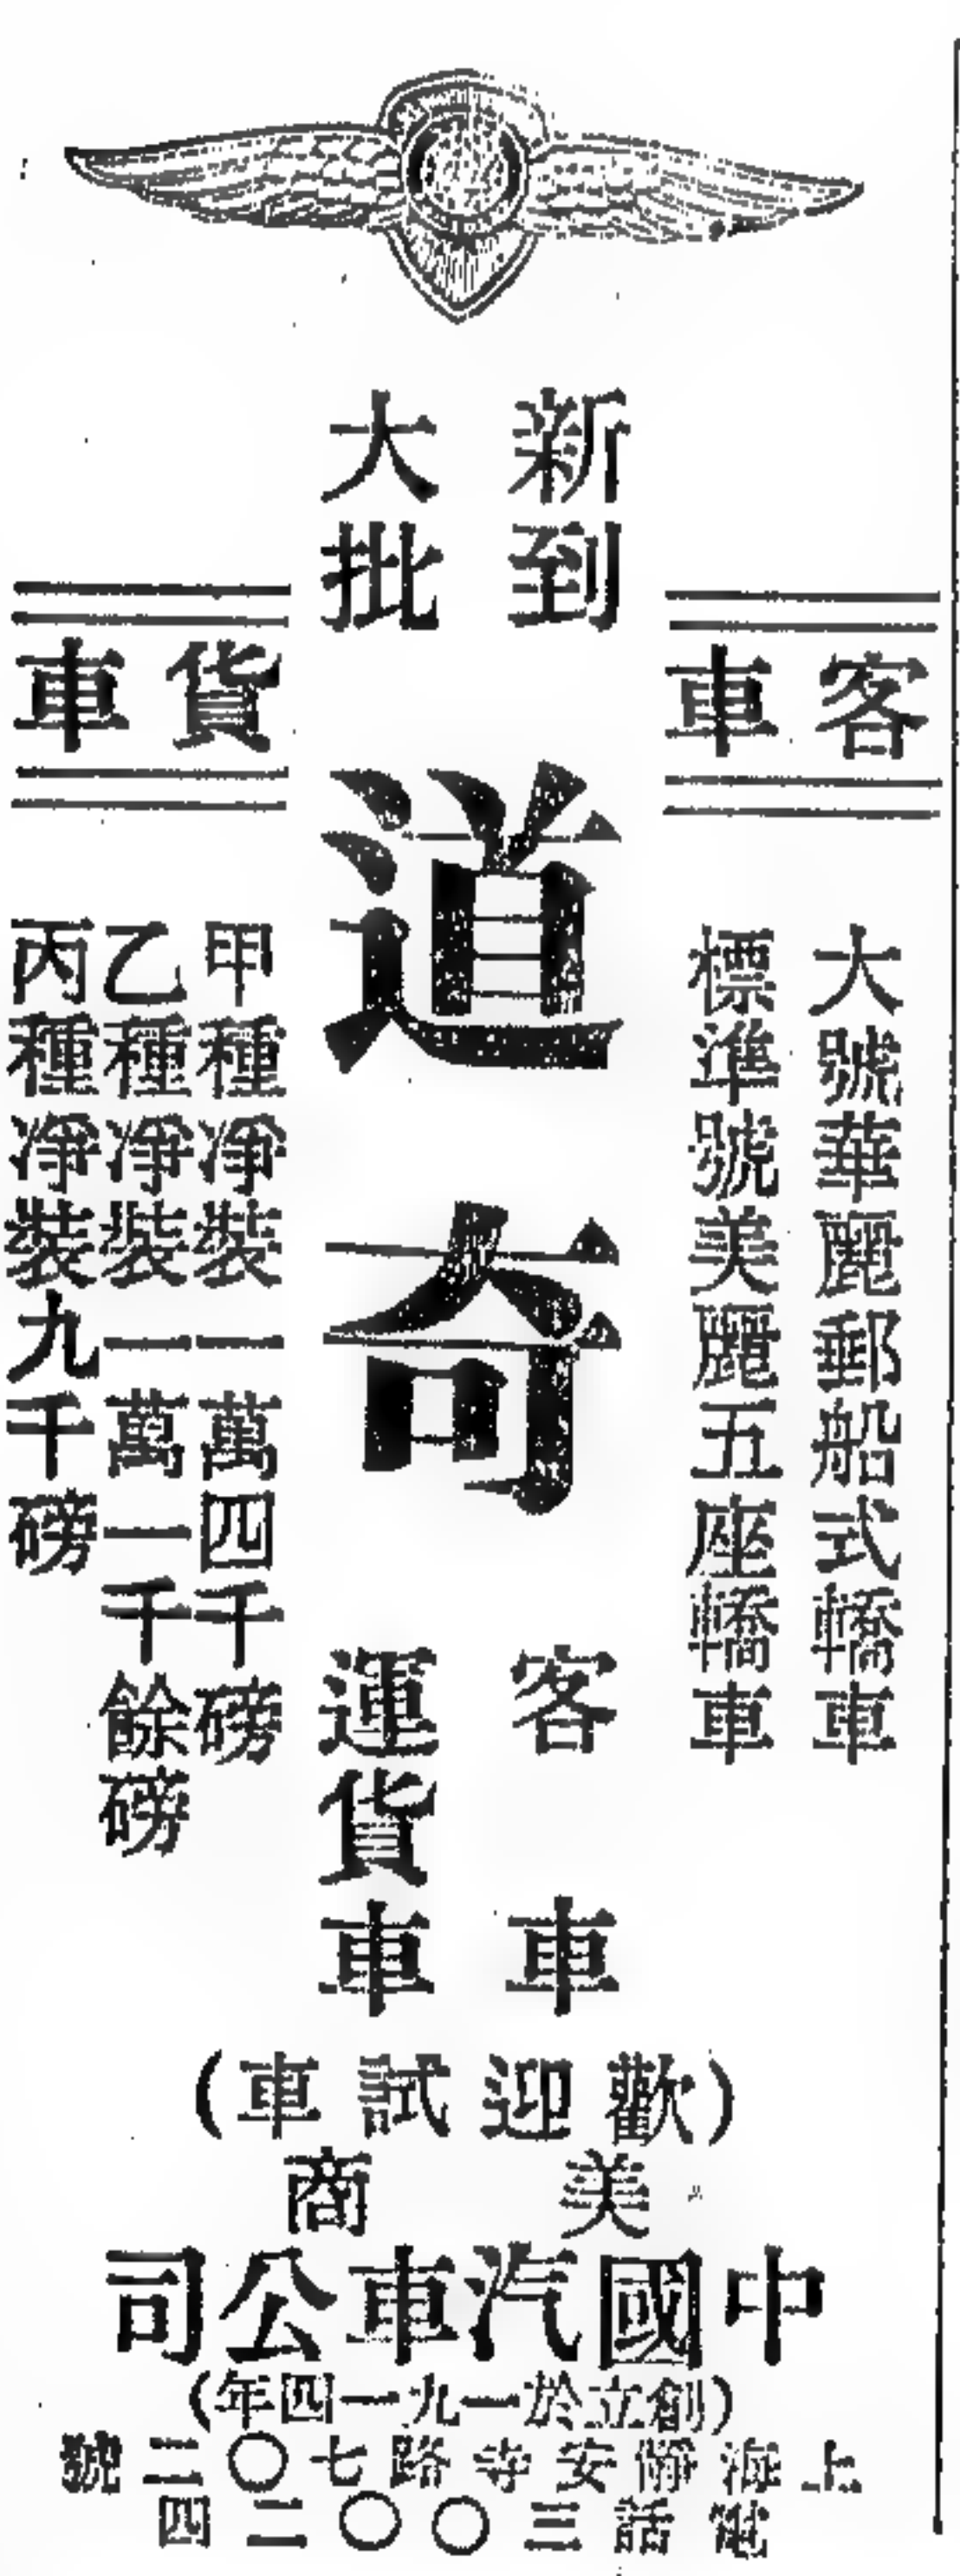 新到
大批
道奇
客車
運貨車
客車
大號華麗郵船式轎車
標準號美麗五座轎車
貨車
甲種淨裝一萬四千磅
乙種淨裝一萬一千餘磅
丙種淨裝九千磅
(歡迎試車)
美商
中國汽車公司
(創立於一九一四年)
上海靜安寺路七〇二號
電話三〇〇二四